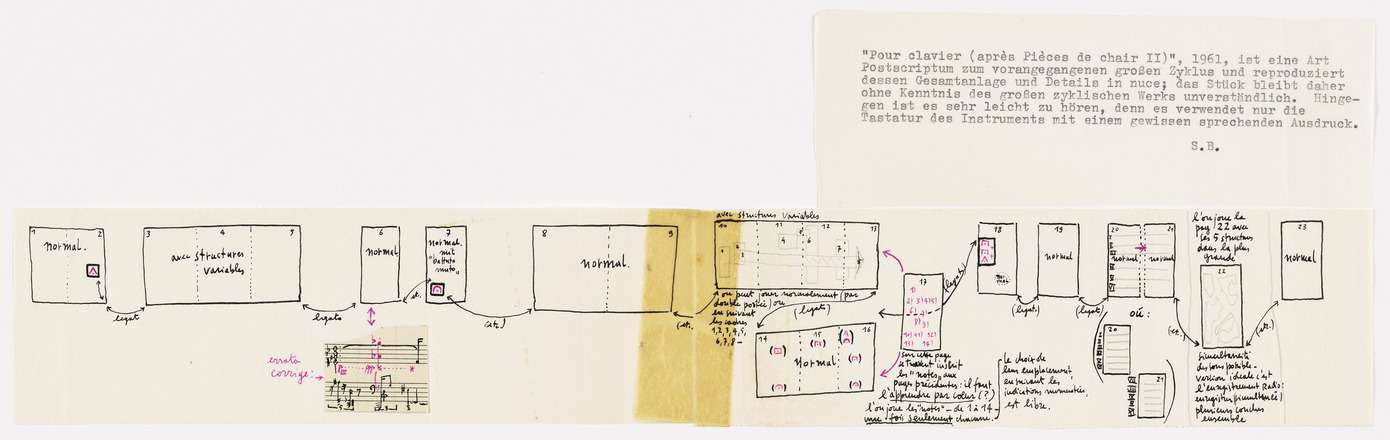 "Pour clavier (après Pièces de chair II)", 1961, ist eine Art
Postscriptum zum vorangegangenen großen Zyklus und reproduziert
dessen Gesamtanlage und Details in nuce; das Stück bleibt daher
ohne Kenntnis des großen zyklischen Werks unverständlich. Hinge-
gen ist es sehr leicht zu hören, denn es verwendet nur die
Tastatur des Instruments mit einem gewissen sprechenden Ausdruck.
S.B.
1 2
normal.
(legato)
3 4 5
avec structures
variables
(legato)
6
normal
errata
corrige:
7
normal.
mit
"battuto
muto"
(etc.)
8 9
normal.
(etc.
avec structures variables
10 11 12 13
on peut jouer normalement (par
double portée) ou
en suivant
les cadres
1, 2, 3, 4, 5,
6, 7, 8 -
(legato)
14 15 16
Normal
17
1)
2) 3) 4) 5)
6) 7)
8) 9)
10) 11) 12)
13) 14)
sur cette page
inscrit
les "notes" aux
pages précédentes: il faut
l'apprendre par cœur (?)
l'on joue les "notes" — de 1 à 14 —
une fois seulement chacune.
le choix de
leur emplacement,
en suivant les
indications
est libre.
(legato)
18
normal
(legato)
19
normal
(legato)
20 21
normal normal
où:
20
21
(etc.
l'on joue la
pag. 22 avec
les 5 structures
dans la plus
grande
22
simultaneité
des sons possible -
version ideale: c'est
l'enregistrement Radio:
plusieurs couches
ensemble
(etc.)
23
normal